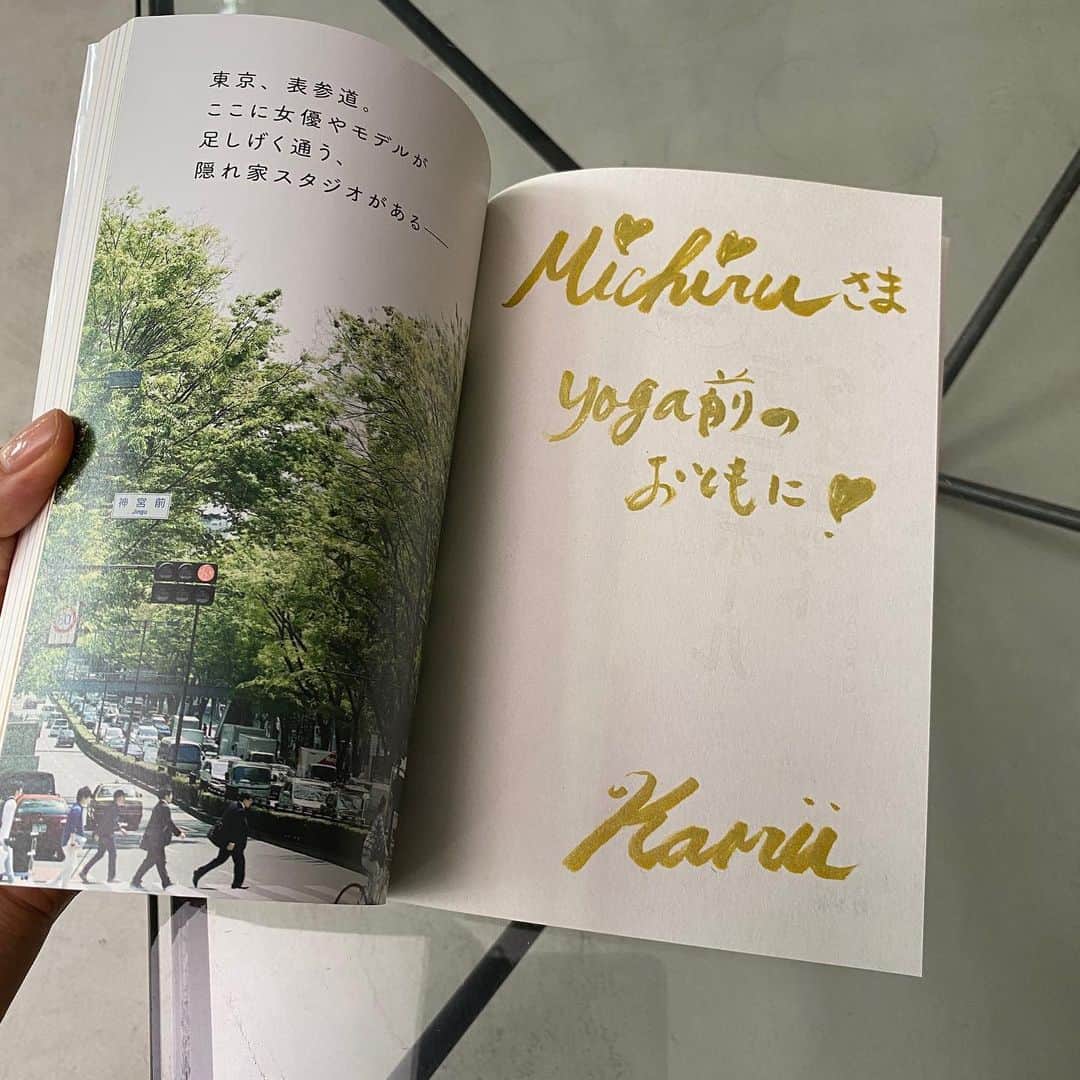 東京、表参道。
ここに女優やモデルが
足しげく通う、
隠れ家スタジオがある──
神宮前
Jingu
60
Michiruさま
yoga前の
おともに!